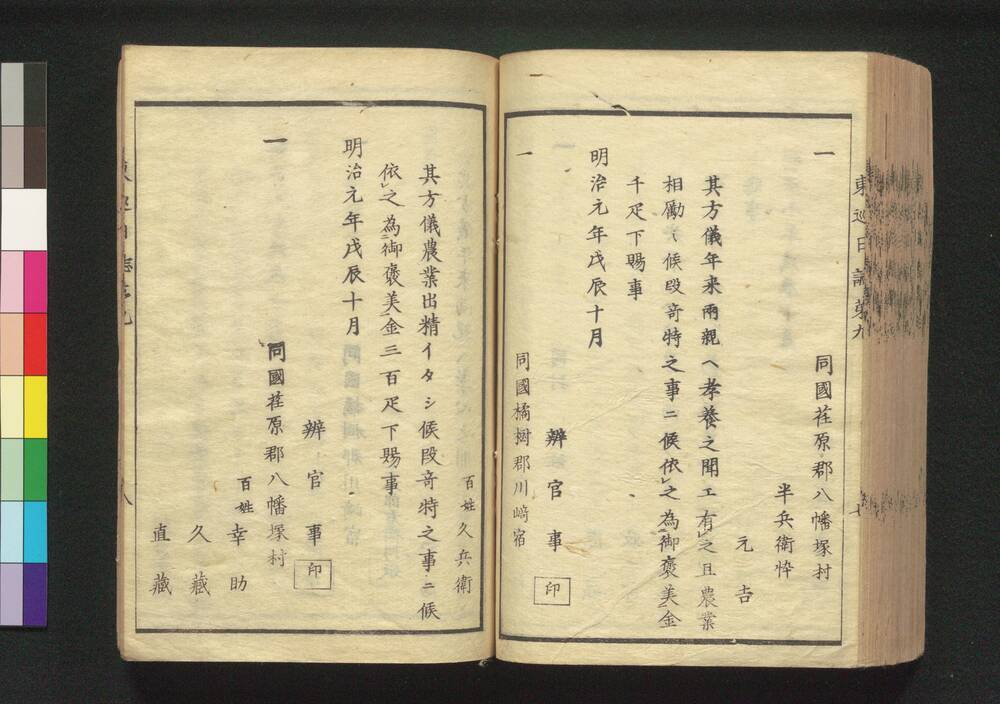 一
同國荏原郡八幡塚村
半兵衛忰
元吉
其方儀年来兩親ヘ孝養之聞エ有レ之且農業
相勵ミ候段竒特之事ニ候依レ之為御褒美金
千疋下賜事
明治元年戊辰十月
辨官事
印
一
同國橘樹郡川﨑宿
百姓久兵衛
其方儀農業出精イタシ候段竒特之事ニ候
依レ之為御褒美金三百疋下賜事
明治元年戊辰十月
辨官事
印
一
同國荏原郡八幡塚村
百姓幸助
久藏
直藏
東巡日誌第九
七
八